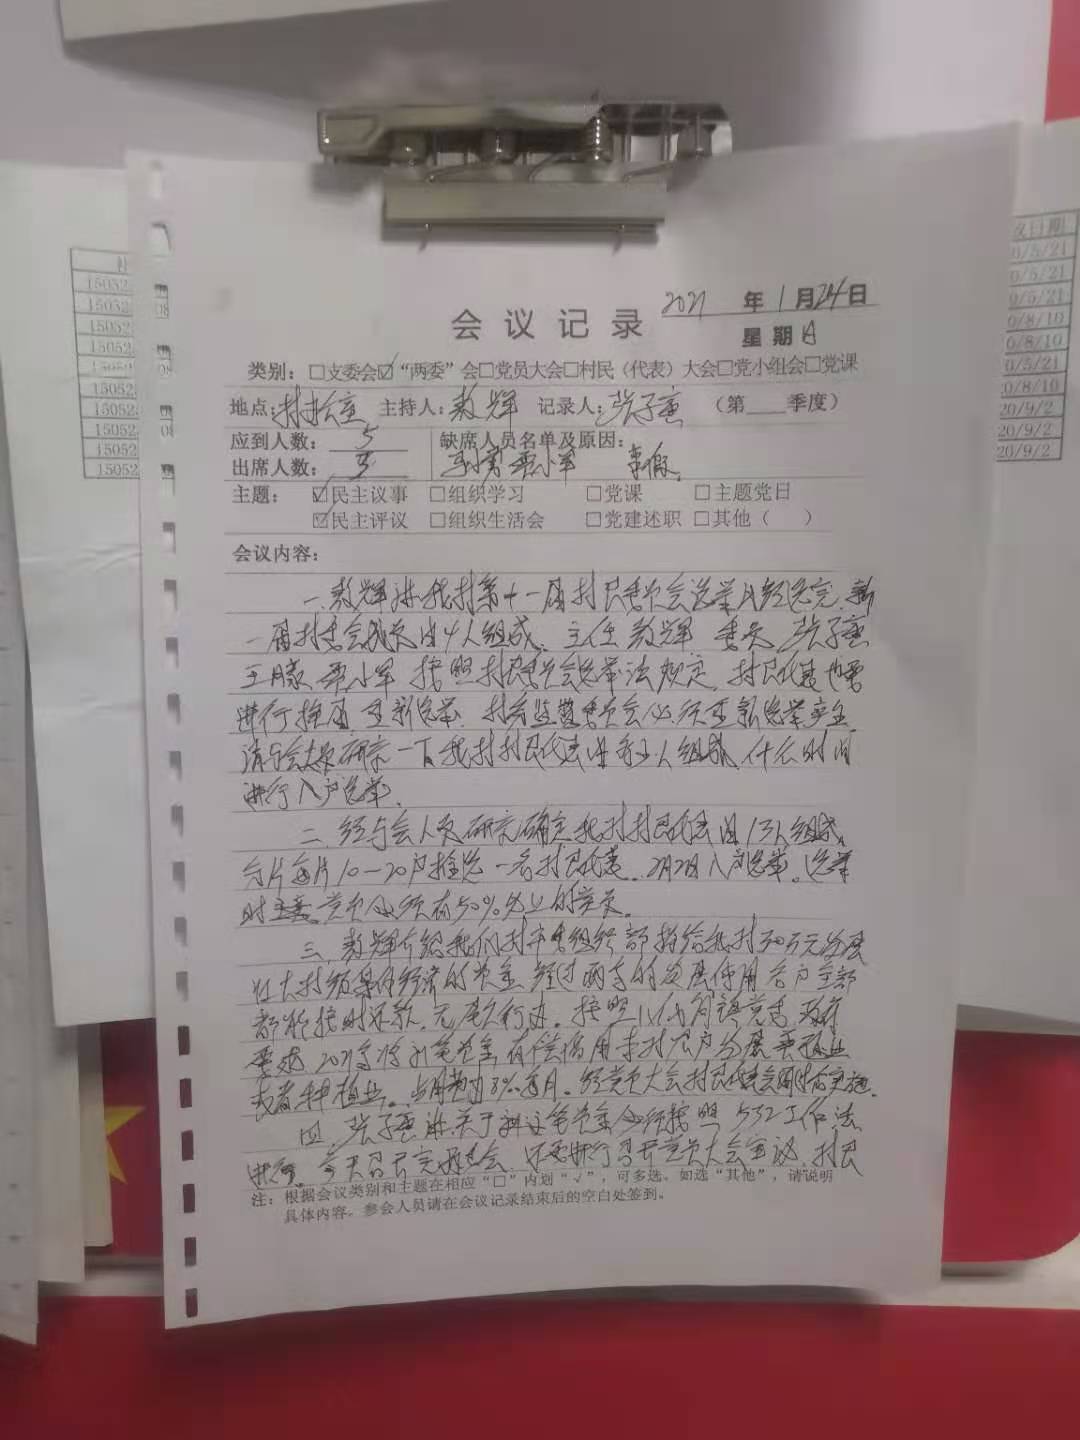 2021 年 1 月 24 日
会议记录
星期日
类别：□支委会☑“两委”会□党员大会□村民（代表）大会□党小组会□党课
地点：村 室 主持人：敖辉 记录人：张子 （第 季度）
应到人数：5 缺席人员名单及原因：
出席人数：3 小军 事假
主题：☑民主议事 □组织学习 □党课 □主题党日
☑民主评议 □组织生活会 □党建述职 □其他（ ）
会议内容：
一、敖辉讲我村第十一届村民委员会选举已经选完，新
一届村委会成员由4人组成，主任敖辉 委员 张子
小军 按照村民委员会选举法规定，村民代表也要
进行 重新选举，村务监督委员会必须重新选举产生
请与会人员研究一下我村村民代表由 人组成，什么时间
进行入户选举。
二、经与会人员研究确定我村村民代表由13人组成，
分片每片10—20户推选一名村民代表。2月2日入户选举。选举
时 党员必须有50%以上的党员。
三、敖辉介绍我们村市委组织部拨给我村50万元发展
壮大村级集体经济的资金，经过两年的发展使用各户全部
都能按时还款，无 行为。按照 镇党委、政府
要求2021年将 笔资金有偿借用本村农户发展养殖业
或者种植业。 8‰每月。经党员大会村民代表会 后实施。
四、张子 讲关于 这笔资金必须按照532工作法
进行，今天召开完 会，还要进行召开党员大会审议，村民
注：根据会议类别和主题在相应“□”内划“√”，可多选。如选“其他”，请说明
具体内容。参会人员请在会议记录结束后的空白处签到。
15032
15052
15052
15052
15052
15052
15052
15052
15052
08
08
08
01
日期
0/5/21
0/5/21
0/5/21
0/8/10
0/8/10
0/5/21
0/8/10
20/9/2
20/9/2
20/9/2